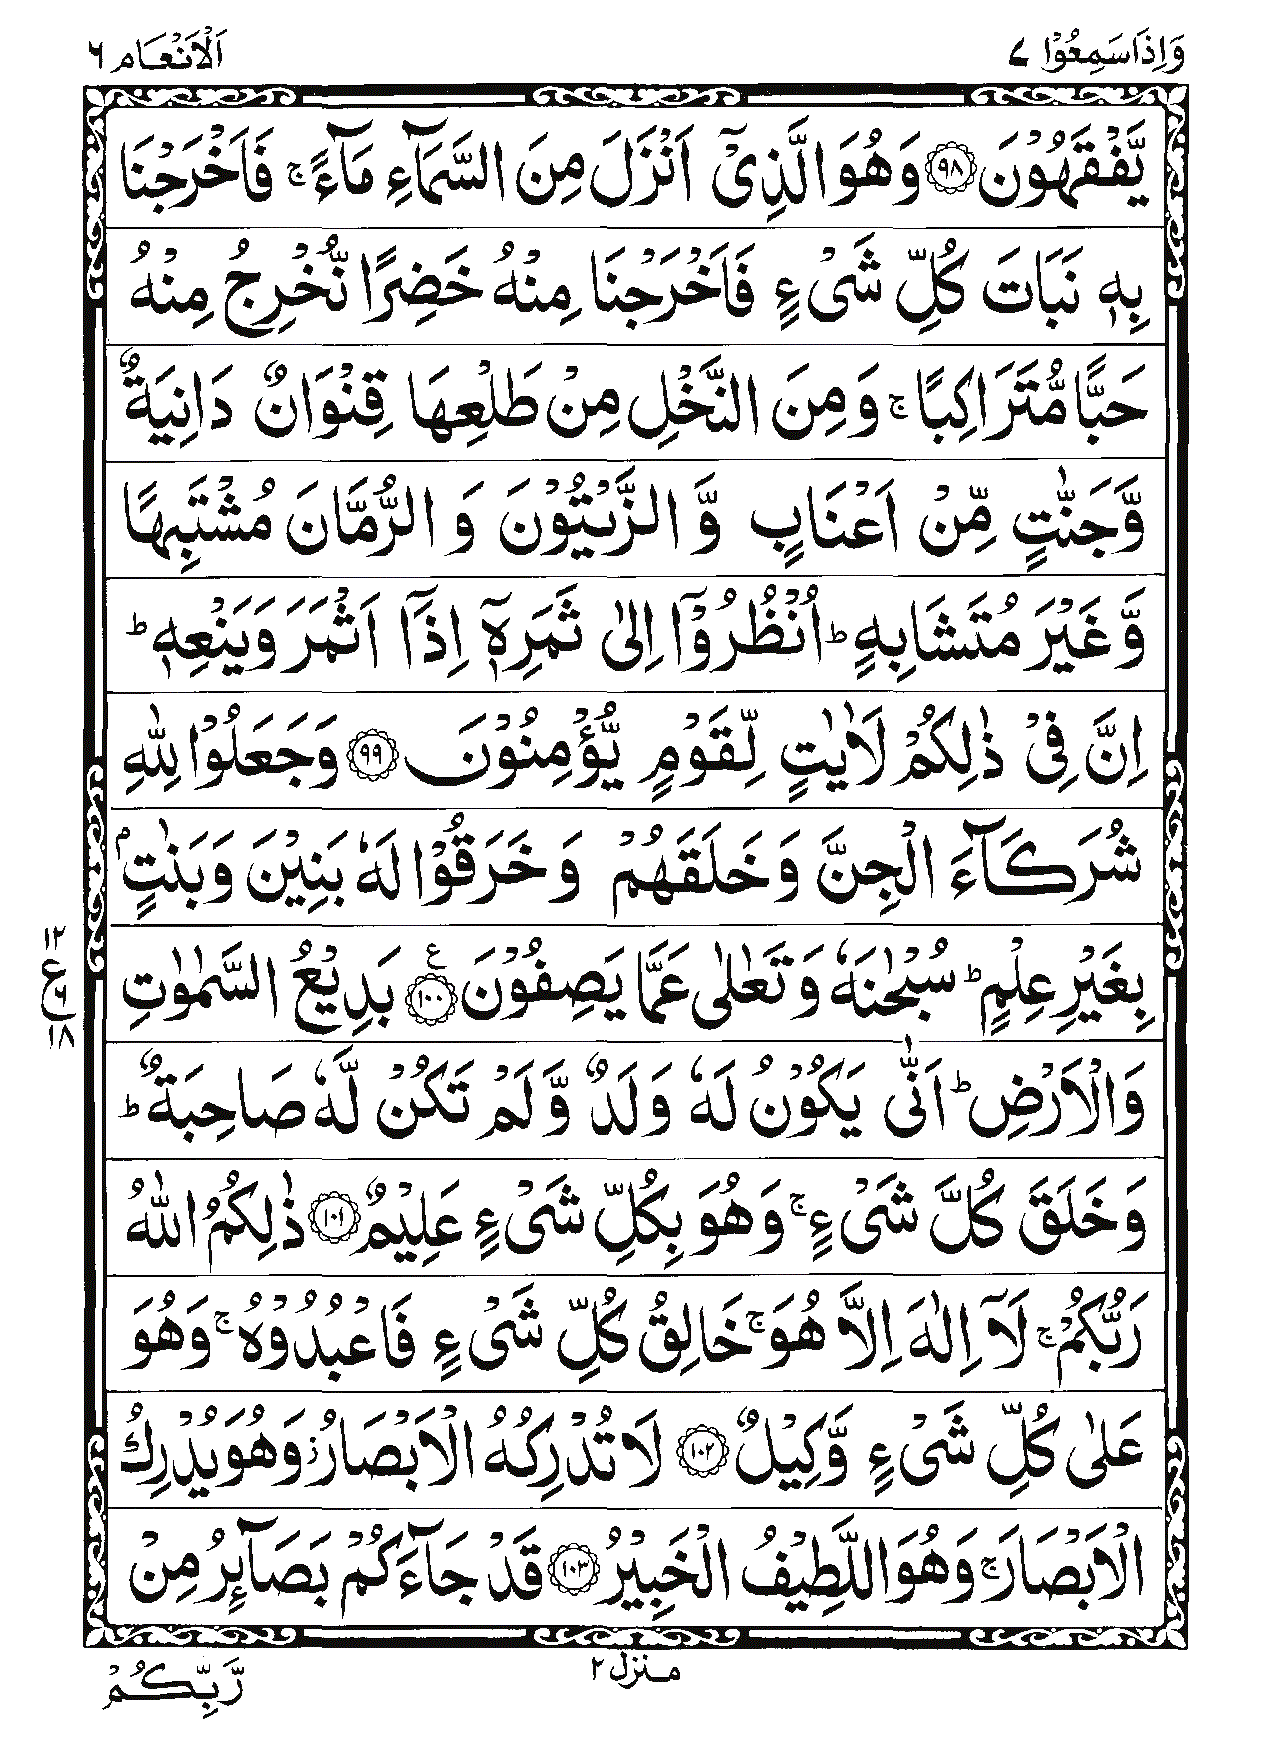 وَاِذَاسَمِعُوْا ۷
اَلْاَنْعَام ۶
يَّفْقَهُوْنَ ۹۸ وَهُوَ الَّذِيْۤ اَنْزَلَ مِنَ السَّمَآءِ مَآءً ۚ فَاَخْرَجْنَا
بِهٖ نَبَاتَ كُلِّ شَيْءٍ فَاَخْرَجْنَا مِنْهُ خَضِرًا نُّخْرِجُ مِنْهُ
حَبًّا مُّتَرَاكِبًا ۚ وَمِنَ النَّخْلِ مِنْ طَلْعِهَا قِنْوَانٌ دَانِيَةٌ
وَّجَنّٰتٍ مِّنْ اَعْنَابٍ وَّ الزَّيْتُوْنَ وَ الرُّمَّانَ مُشْتَبِهًا
وَّغَيْرَ مُتَشَابِهٍ ؕ اُنْظُرُوْۤا اِلٰى ثَمَرِهٖۤ اِذَاۤ اَثْمَرَ وَيَنْعِهٖ ؕ
اِنَّ فِيْ ذٰلِكُمْ لَاٰيٰتٍ لِّقَوْمٍ يُّؤْمِنُوْنَ ۹۹ وَجَعَلُوْا لِلّٰهِ
شُرَكَآءَ الْجِنَّ وَخَلَقَهُمْ وَ خَرَقُوْا لَهٗ بَنِيْنَ وَبَنٰتٍۭ
بِغَيْرِ عِلْمٍ ؕ سُبْحٰنَهٗ وَ تَعٰلٰى عَمَّا يَصِفُوْنَ ۱۰۰ ع بَدِيْعُ السَّمٰوٰتِ
۱۲
ع
۶
۱۸
وَالْاَرْضِ ؕ اَنّٰى يَكُوْنُ لَهٗ وَلَدٌ وَّلَمْ تَكُنْ لَّهٗ صَاحِبَةٌ ؕ
وَخَلَقَ كُلَّ شَيْءٍ ۚ وَهُوَ بِكُلِّ شَيْءٍ عَلِيْمٌ ۱۰۱ ذٰلِكُمُ اللّٰهُ
رَبُّكُمْ ۚ لَاۤ اِلٰهَ اِلَّا هُوَ ۚ خَالِقُ كُلِّ شَيْءٍ فَاعْبُدُوْهُ ۚ وَهُوَ
عَلٰى كُلِّ شَيْءٍ وَّكِيْلٌ ۱۰۲ لَا تُدْرِكُهُ الْاَبْصَارُ ز وَهُوَ يُدْرِكُ
الْاَبْصَارَ ۚ وَهُوَ اللَّطِيْفُ الْخَبِيْرُ ۱۰۳ قَدْ جَآءَكُمْ بَصَآئِرُ مِنْ
منزل ۲
رَّبِّكُمْ